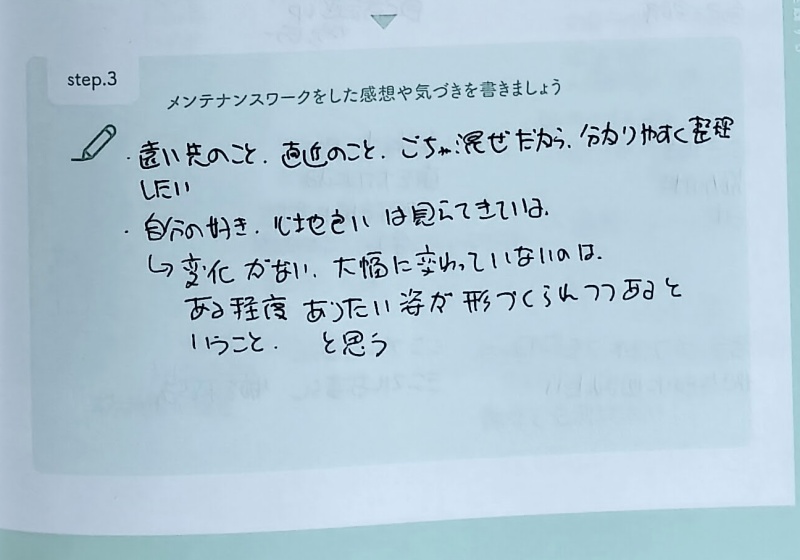 step.3
メンテナンスワークをした感想や気づきを書きましょう
・遠い先のこと、直近のこと、ごちゃ混ぜだから、分かりやすく整理
したい
・自分の好き、心地良い は見えてきている。
↳ 変化 がない、大幅に変わっていないのは、
ある程度 ありたい姿が 形づくられつつあると
いうこと. と思う